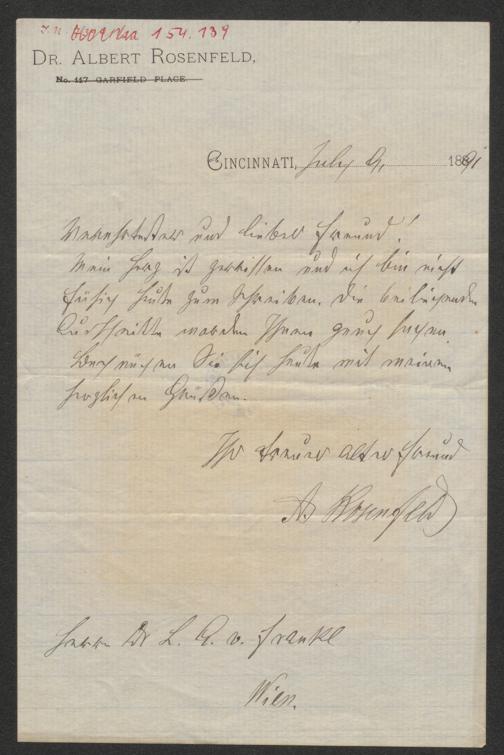 154.139
DR. ALBERT ROSENFELD,
No. 117 GARFIELD PLACE.
CINCINNATI, July 9, 1891
Verehrtester und lieber Freund!
Mein Herz ist zerrissen und ich bin nicht
fähig heute zum Schreiben. Die beiliegenden
Ausschnitte werden Ihnen genug sagen.
Begnügen Sie sich heute mit meinen
herzlichen Grüßen.
Ihr treuer alter Freund
A Rosenfeld
Herrn Dr L. A. v. Frankl
Wien.